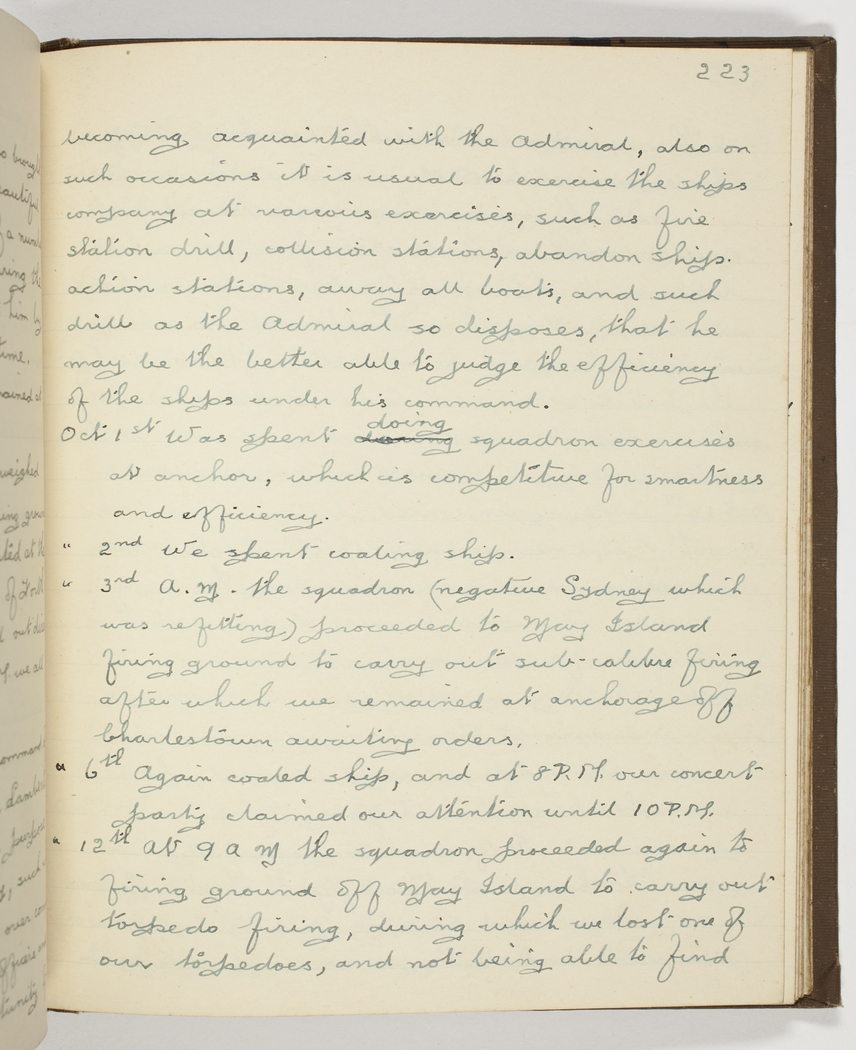 223
becoming acquainted with the Admiral, also on
such occasions it is usual to exercise the ships
company at various exercises, such as fire
station drill, collision stations, abandon ship.
action stations, away all boats, and such
drill as the Admiral so disposes, that he
may be the better able to judge the efficiency
of the ships under his command.
doing
Oct 1st Was spent during squadron exercises
at anchor, which is competitive for smartness
and efficiency.
" 2nd We spent coaling ship.
" 3rd A.M. the squadron (negative Sydney which
was refitting) proceeded to May Island
firing ground to carry out sub-calibre firing
after which we remained at anchorage off
Charlestown awaiting orders.
" 6th Again coaled ship, and at 8 P.M. our concert
party claimed our attention until 10 P.M.
" 12th At 9 A M the squadron proceeded again to
firing ground off May Island to carry out
torpedo firing, during which we lost one of
our torpedoes, and not being able to find